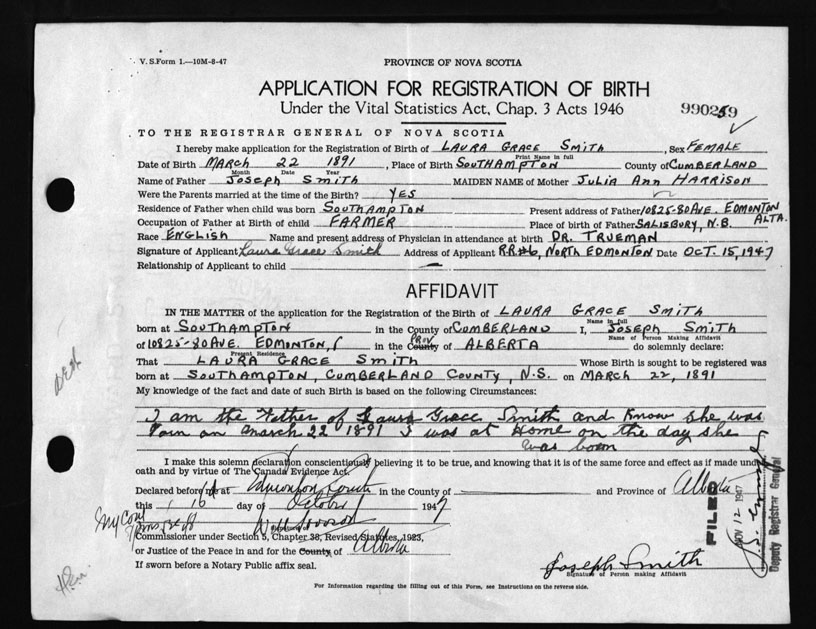 V. S. Form 1.—10M-8-47
PROVINCE OF NOVA SCOTIA
APPLICATION FOR REGISTRATION OF BIRTH
Under the Vital Statistics Act, Chap. 3 Acts 1946
990259
TO THE REGISTRAR GENERAL OF NOVA SCOTIA
I hereby make application for the Registration of Birth of LAURA GRACE SMITH, Sex FEMALE
Print Name in full
Date of Birth MARCH 22 1891, Place of Birth SOUTHAMPTON County of CUMBERLAND
Month Date Year
Name of Father JOSEPH SMITH MAIDEN NAME of Mother JULIA ANN HARRISON
Were the Parents married at the time of the Birth? YES
Residence of Father when child was born SOUTHAMPTON Present address of Father 10825-80 AVE. EDMONTON ALTA.
Occupation of Father at Birth of child FARMER Place of birth of Father SALISBURY, N.B.
Race ENGLISH Name and present address of Physician in attendance at birth DR. TRUEMAN
Signature of Applicant Laura Grace Smith Address of Applicant R.R.#6, NORTH EDMONTON Date OCT. 15, 1947
Relationship of Applicant to child —
AFFIDAVIT
IN THE MATTER of the application for the Registration of the Birth of LAURA GRACE SMITH
Name in full
born at SOUTHAMPTON in the County of CUMBERLAND I, JOSEPH SMITH
Name of Person Making Affidavit
of 10825-80 AVE. EDMONTON, in the County PROV of ALBERTA do solemnly declare:
Present Residence
That LAURA GRACE SMITH Whose Birth is sought to be registered was
born at SOUTHAMPTON, CUMBERLAND COUNTY, N.S. on MARCH 22, 1891
My knowledge of the fact and date of such Birth is based on the following Circumstances:
I am the Father of Laura Grace Smith and Know she was
born on March 22 1891 I was at Home on the day she
was born
I make this solemn declaration conscientiously believing it to be true, and knowing that it is of the same force and effect as if made under
oath and by virtue of The Canada Evidence Act.
Declared before me at Edmonton in the County of and Province of Alberta
this 16 day of October 1947
Signature of
Commissioner under Section 5, Chapter 38, Revised Statutes, 1923,
or Justice of the Peace in and for the County of Alberta
If sworn before a Notary Public affix seal.
Joseph Smith
Signature of Person making Affidavit
For Information regarding the filling out of this Form, see Instructions on the reverse side.
FILED
NOV 12 1947
Deputy Registrar General